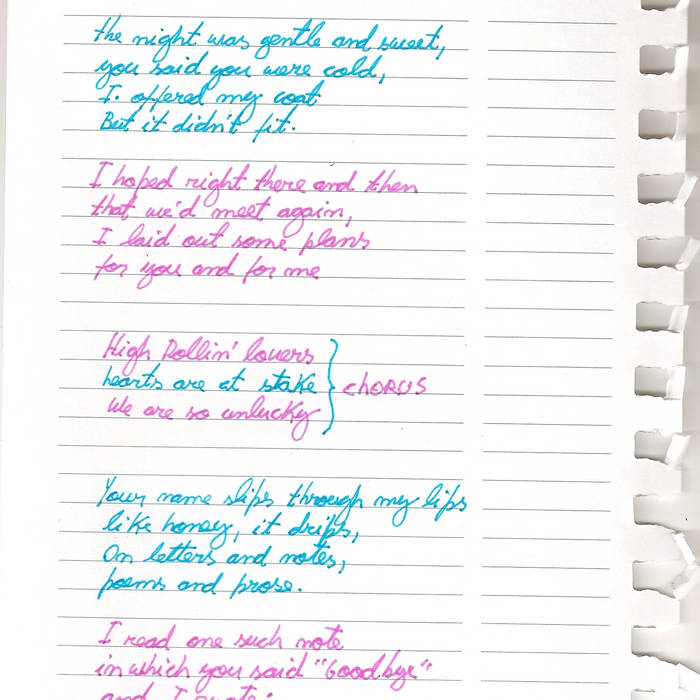 the night was gentle and sweet,
you said you were cold,
I offered my coat
But it didn't fit.
I hoped right there and then
that we'd meet again,
I laid out some plans
for you and for me
High Rollin' lovers
hearts are at stake
We are so unlucky
chORUS
Your name slips through my lips
like honey, it drips,
On letters and notes,
poems and prose.
I read one such note
in which you said "Goodbye"
and I quote: